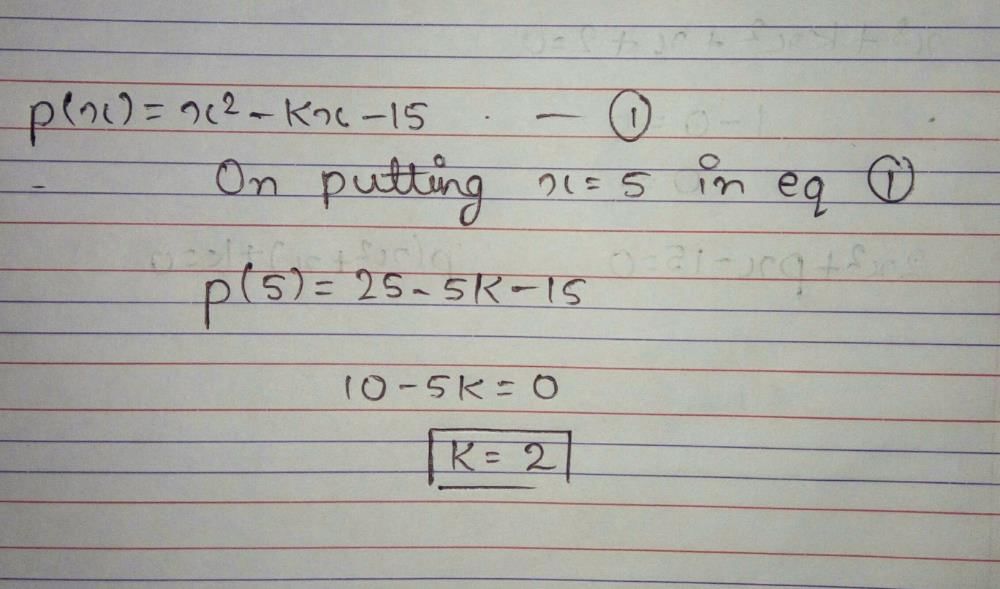 p(x) = x² - Kx - 15 — ①
- On putting x = 5 in eq ①
p(5) = 25 - 5K - 15
10 - 5K = 0
K = 2